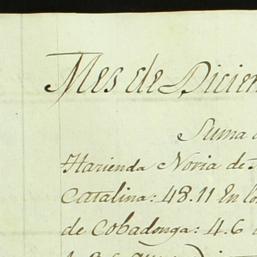 Mes de Diciem
Suma
Hacienda Noria de
Catalina: 48.11 En lo
de Cobadonga: 4.6